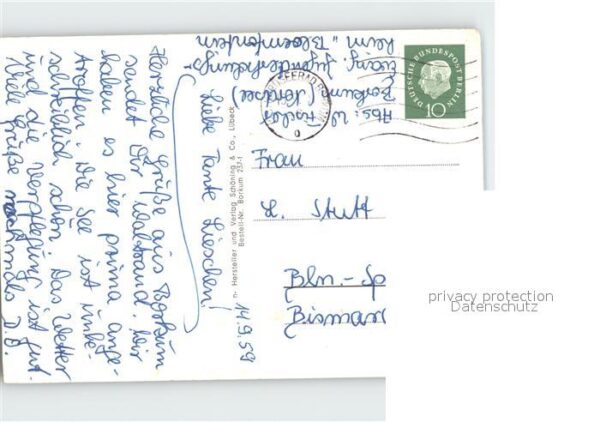 14.9.59
Liebe Tante Lieschen!
Herzliche Grüße aus Borkum
sendet Dir Waltraud. Wir
haben es hier prima ange-
troffen. Die See ist unbe-
schreiblich schön. Das Wetter
und die Verpflegung ist gut.
Viele Grüße nochmals D. O.
Abs: W.
Borkum (Nordsee)
Evang. Jugenderholungs-
heim „Bloemfontein
NORDSEEBAD
DEUTSCHE BUNDESPOST BERLIN
10
Hersteller und Verlag Schöning & Co., Lübeck
Bestell-Nr. Borkum 237-1
Frau
L. Stutt
Bln.-Sp
privacy protection
Datenschutz